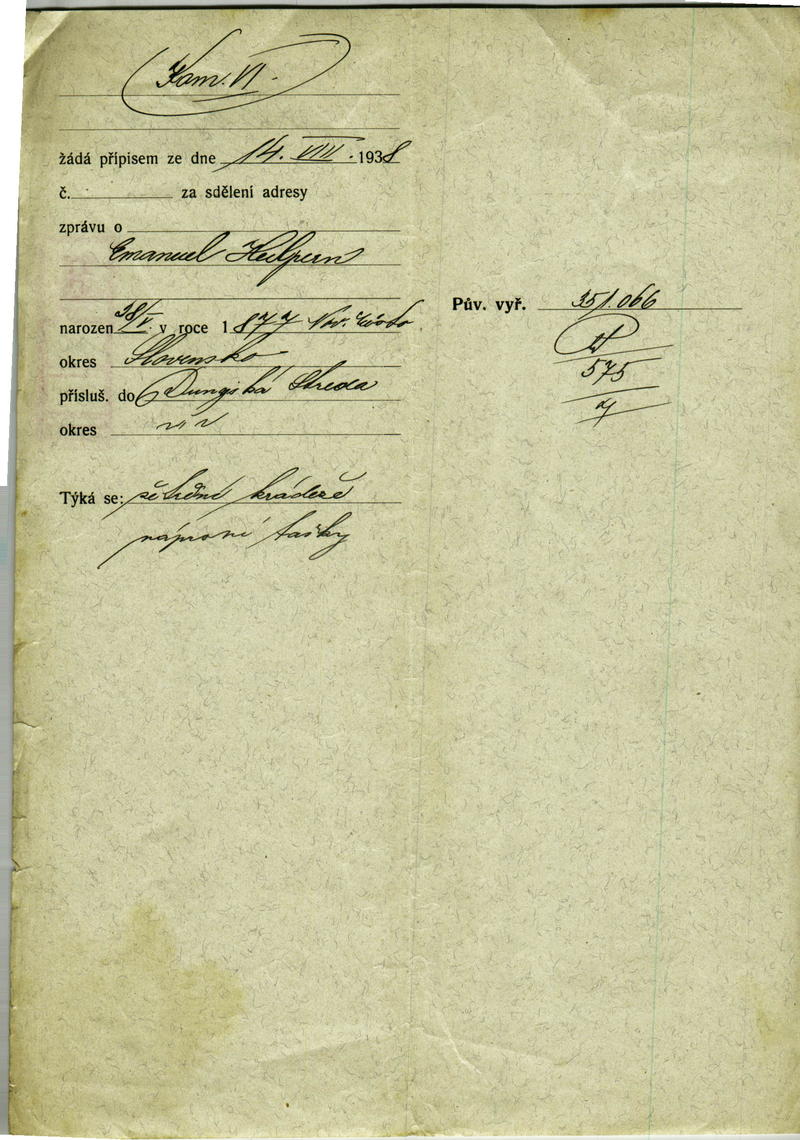 Kom. VI.
žádá přípisem ze dne 14. VIII. 1938
č. za sdělení adresy
zprávu o
Emanuel Heilpern
narozen 28/V. v roce 1877 Nov. Město
okres Slovensko
přísluš. do Dunajská Streda
okres
Týká se: šetření krádeže
náprsní tašky
Pův. vyř. 351.066
575